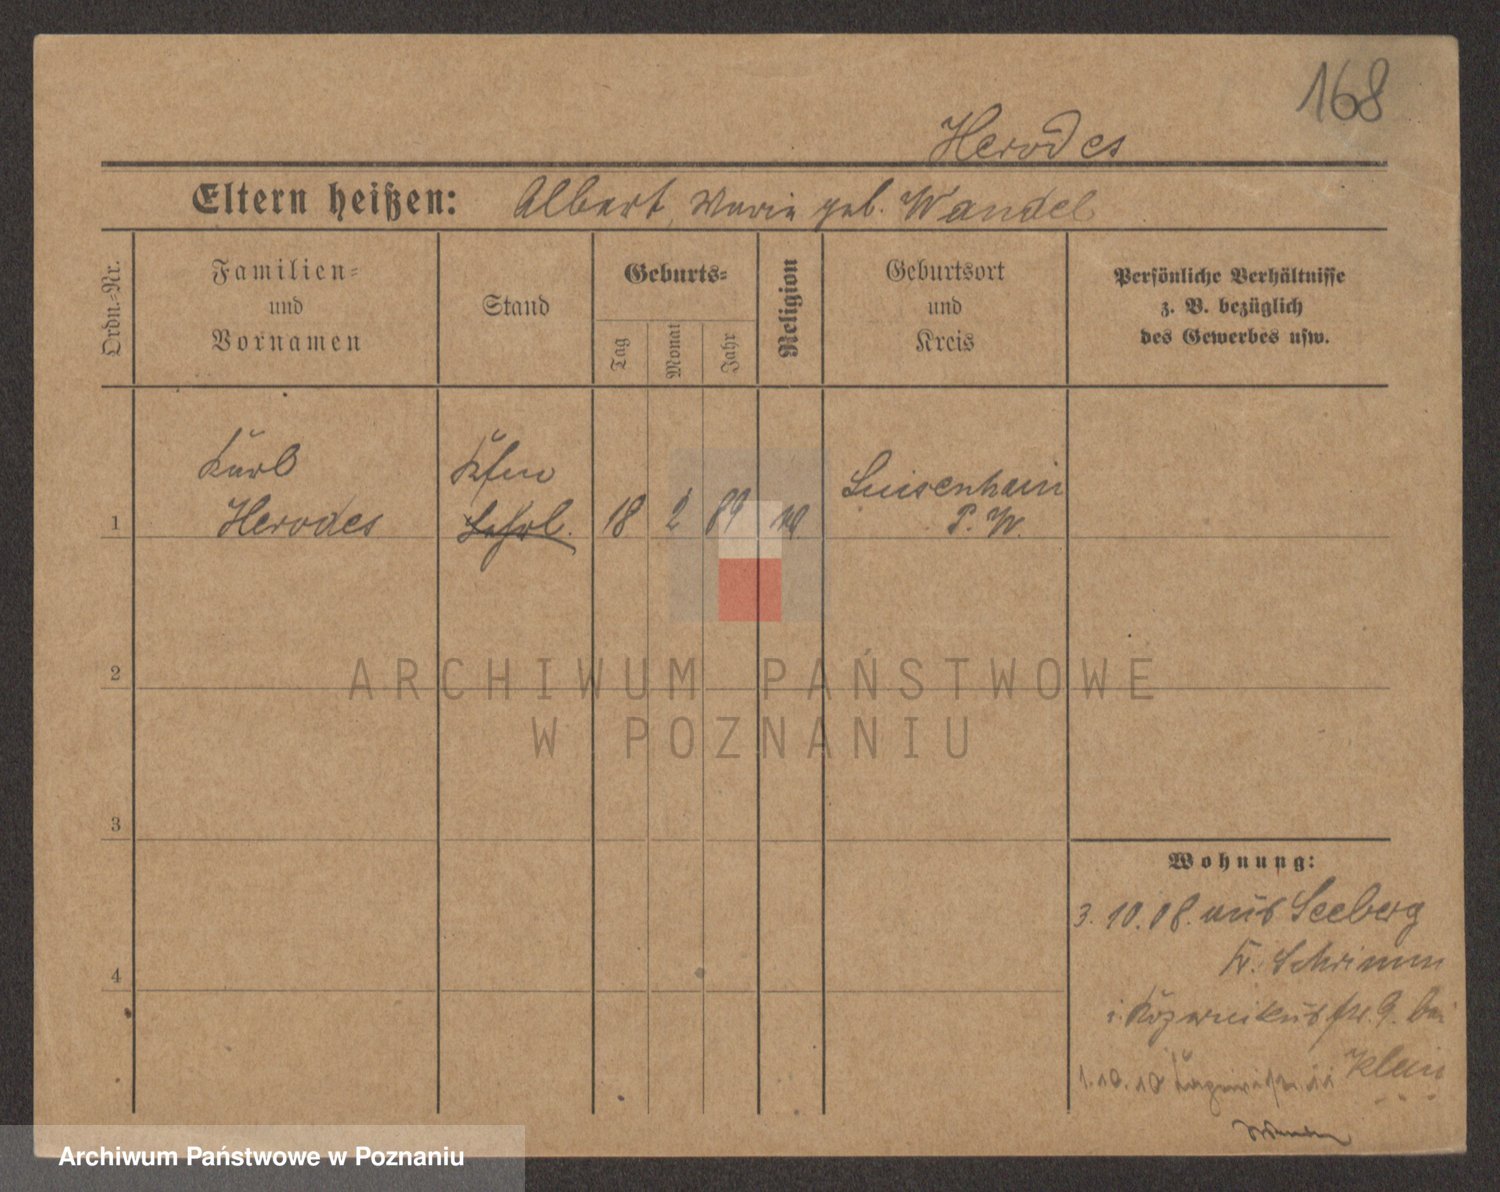 168
Herodes
Eltern heißen: Albert, Marie geb. Wandel
Ordn.-Nr.
Familien-
und
Vornamen
Stand
Geburts-
Tag
Monat
Jahr
Religion
Geburtsort
und
Kreis
Persönliche Verhältnisse
z. B. bezüglich
des Gewerbes usw.
1
Karl
Herodes
Kfm
Lehrl.
18
2
89
Luisenhain
P. W.
2
ARCHIWUM PAŃSTWOWE
W POZNANIU
3
4
Wohnung:
3. 10. 08. aus Seeberg
Kr. Schrimm
9. bei
Klein
1. 10. 10
Archiwum Państwowe w Poznaniu